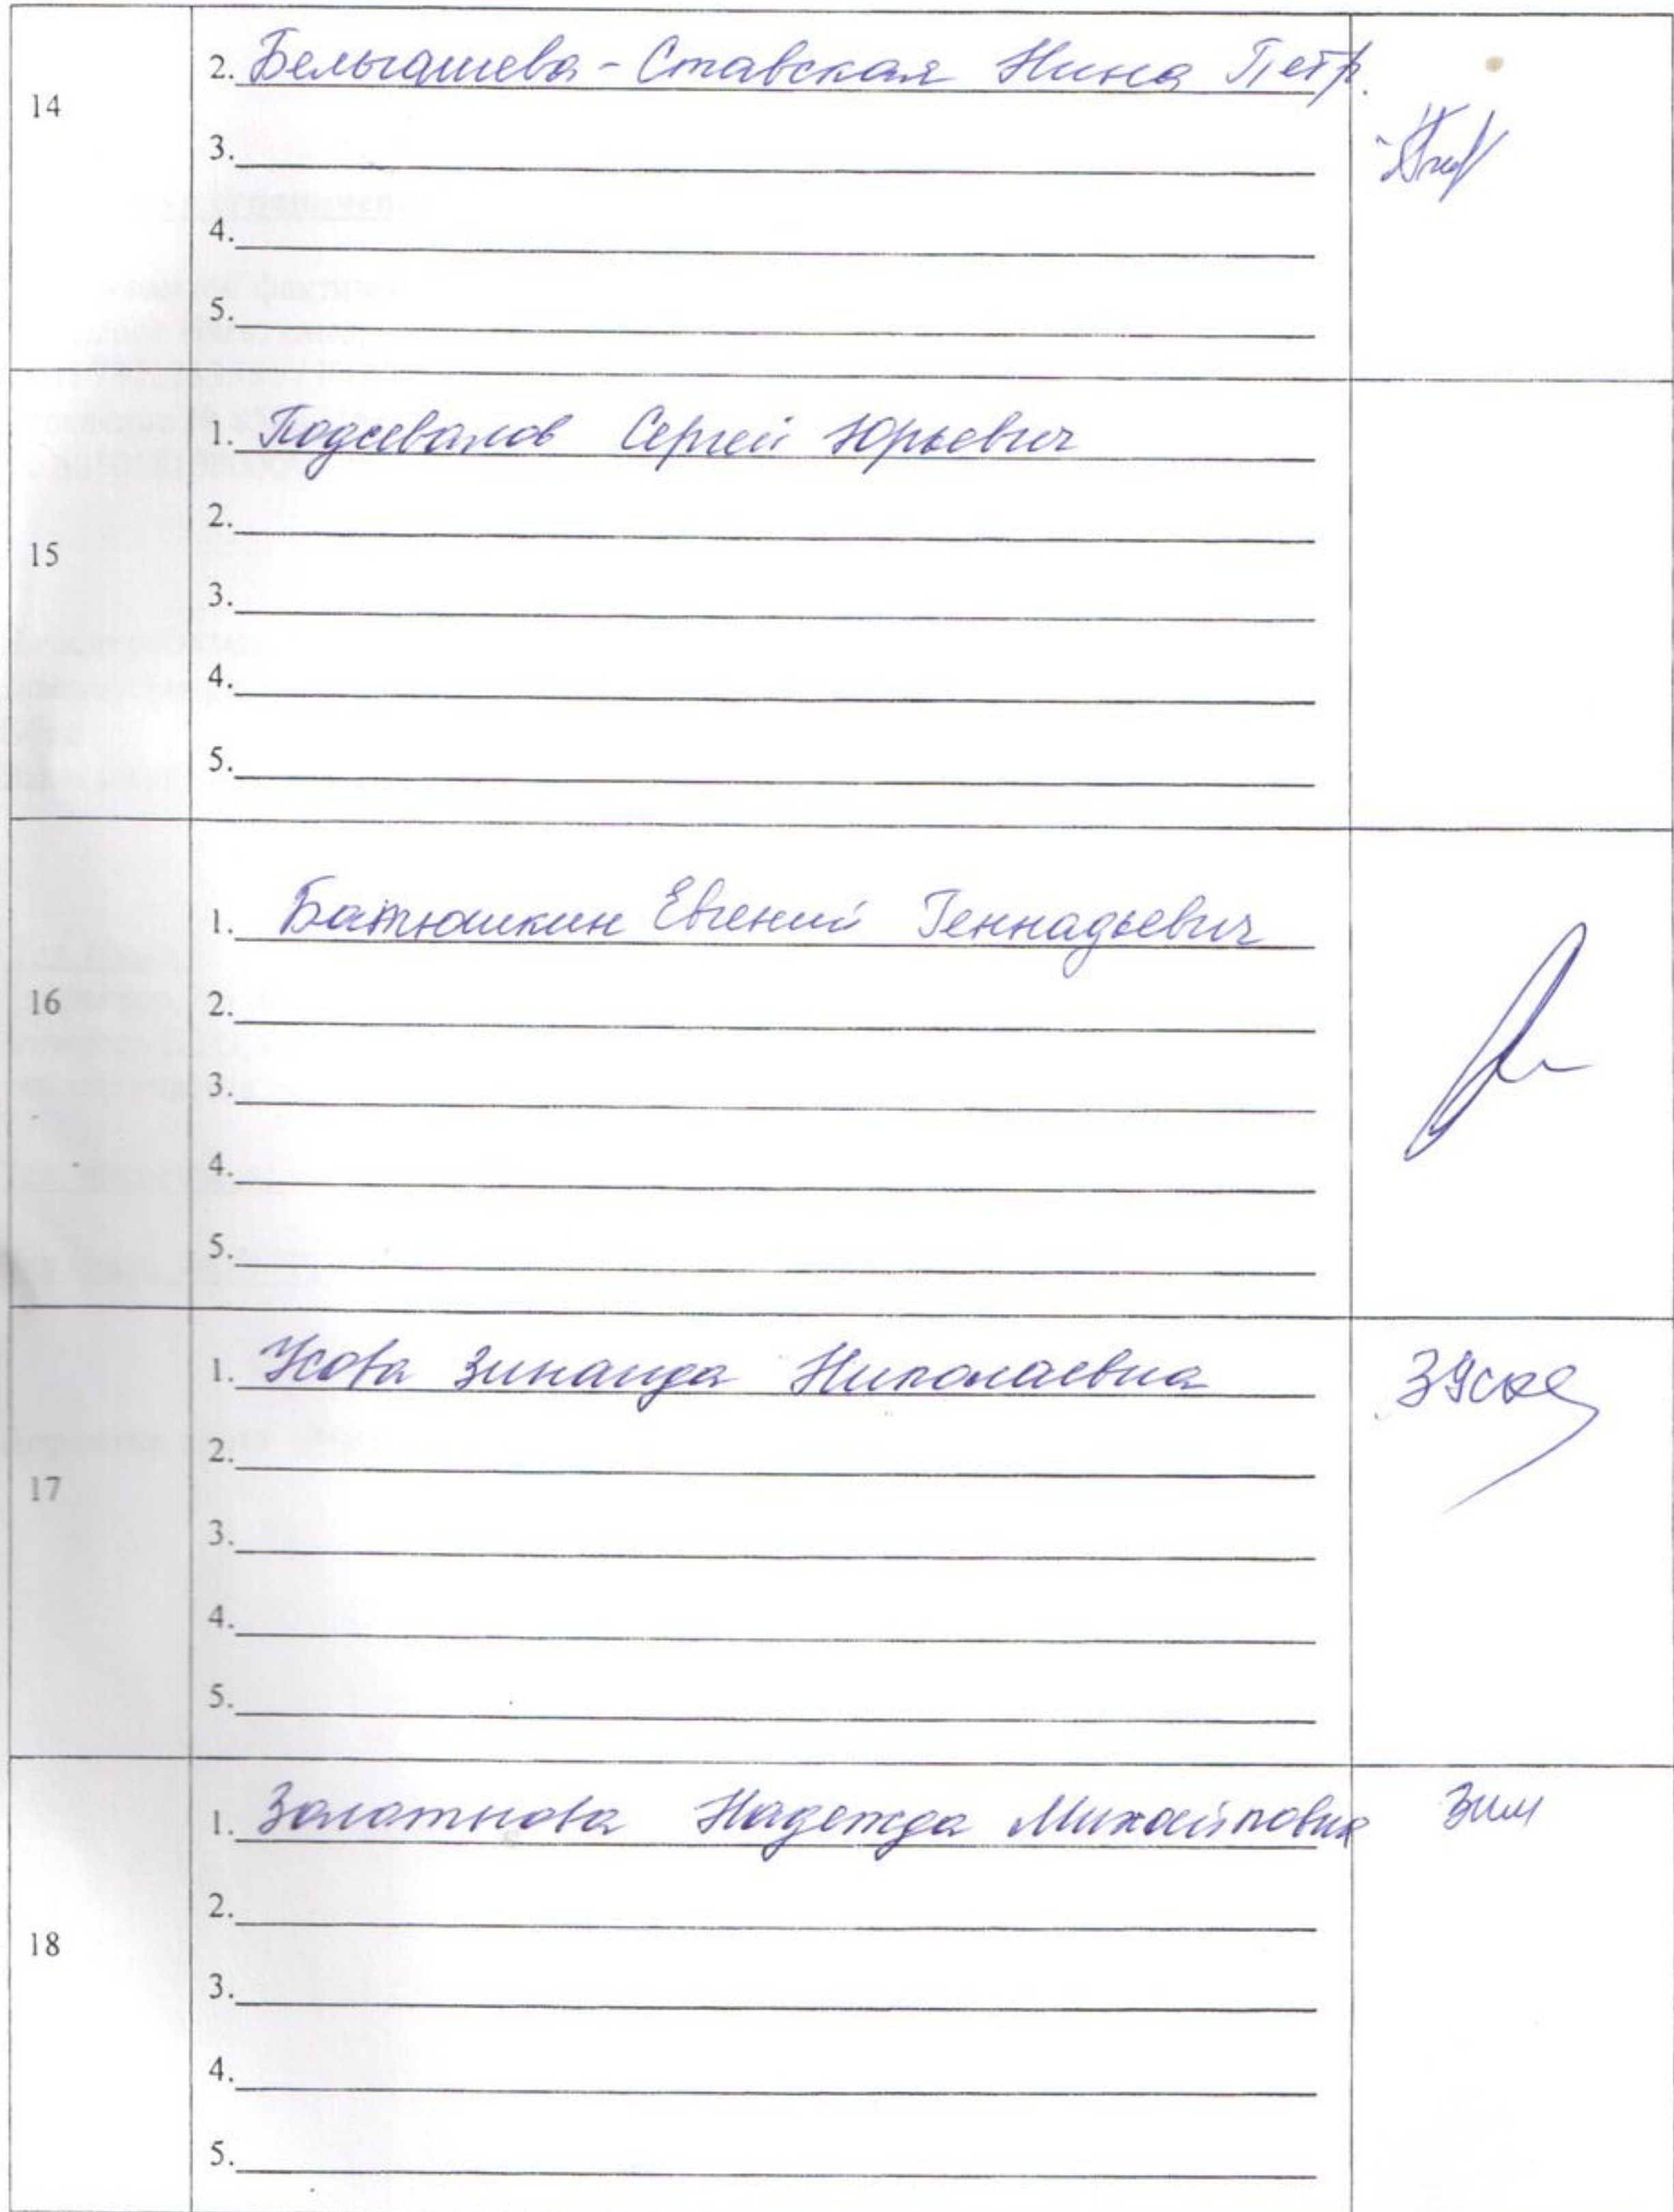 14
2. Белогашева-Ставская Нина Петр.
3.
4.
5.
15
1. Подсевалов Сергей Юрьевич
2.
3.
4.
5.
16
1. Батюшкин Евгений Геннадьевич
2.
3.
4.
5.
17
1. Усова Зинаида Николаевна
ЗУсов
2.
3.
4.
5.
18
1. Золотнова Надежда Михайловна
2.
3.
4.
5.